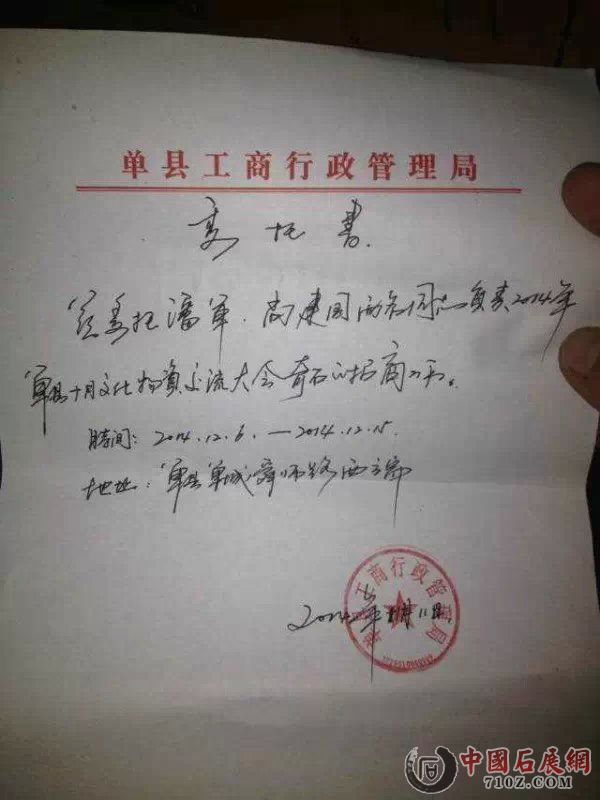 单县工商行政管理局
委托书.
兹委托潘军、尚建国两名同志负责2014年
单县十月文化物资交流大会奇石的招商工作。
时间: 2014.12.6.—2014.12.15.
地址: 单县单城舜师路西部
单县工商行政管理局
2014年 月11日
中國石展網
710Z.COM